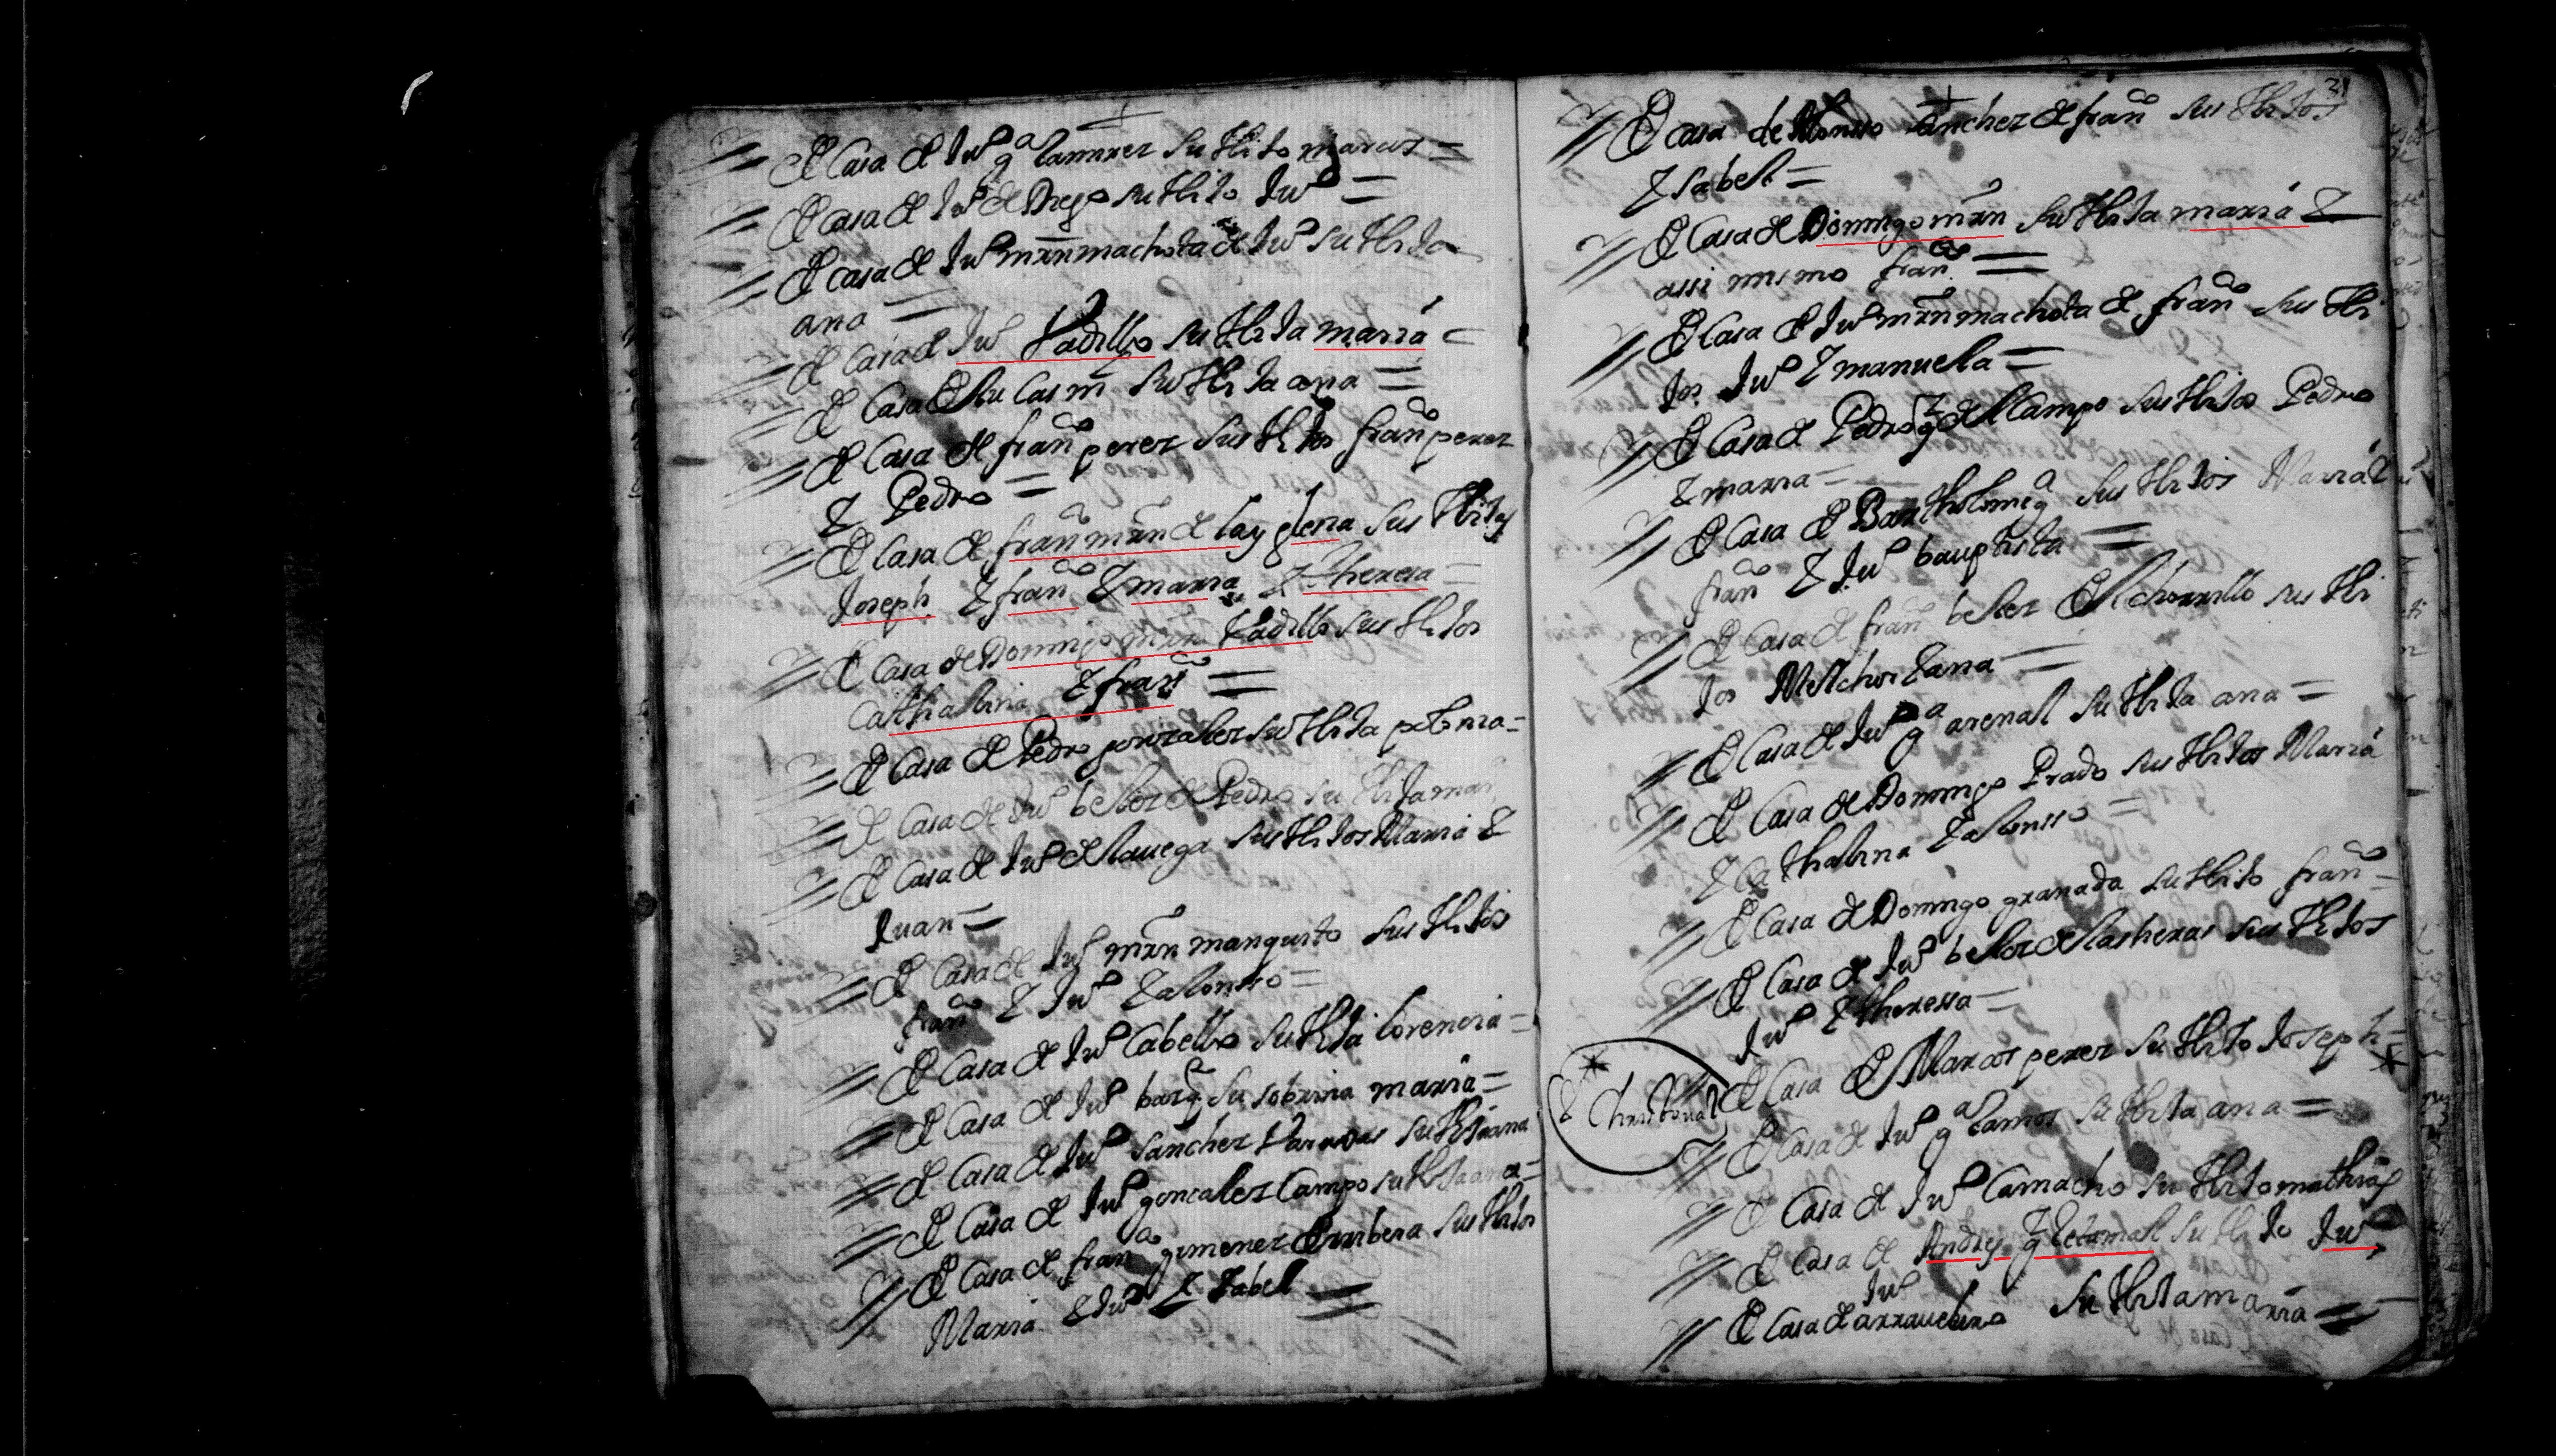 De Casa de Juº gª Ramirez su Hijo marcos =
De Casa de Juº de Diego su Hijo Juº =
De casa de Juº mrn machota de Juº su Hija
ana =
De casa de Juº Vadillo su Hija maria =
De Casa de lucas m su Hija ana =
De Casa de franco perez sus Hijos franco perez
E Pedro =
De Casa de franco mrn de la yglesia sus Hijos
Joseph E franco E maria E Theresa =
De Casa de Domingo mrn Vadillo sus Hijos
Cathalina E franco =
De Casa de Pedro gonzalez su Hija =
De Casa de Juº belez de Pedro su Hija mar
De Casa de Juº de la uega sus Hijos Maria E
Juan =
De Casa de Juº mrn manquito sus Hijos
franco E Juº E alonsso =
De Casa de Juº Cabello su Hija Lorencia =
De Casa de Juº su sobrina maria =
De Casa de Juº Sanchez su Hija ana
De Casa de Juº goncalez Campo su Hija ana =
De Casa de franco gimenez sus Hijos
Maria E Juº E Isabel =
31
De casa de Alonsso Sanchez de franco sus Hijos
Isabel =
De Casa de Domingo mrn su Hija maria E
assi mismo franco =
De Casa de Juº mrn machota de franco sus Hi
jos Juº E manuela =
De Casa de Pedro gz del Campo sus Hijos Pedro
E maria =
De Casa de Bartholome gª sus Hijos Maria E
franco E Juº bauptista =
De Casa de franco belez El chorrillo sus Hi
jos Melchor E ana =
De Casa de Juº gª arenal su Hija ana =
De Casa de Domingo Prado sus Hijos Maria
E Cathalina E alonsso =
De Casa de Domingo granada su Hijo franco =
De Casa de Juº belez de las heras sus Hijos
Juº E Theressa =
De Casa de Marcos perez su Hijo Joseph = *
* E Christoual
De Casa de Juº gª Ramos su Hija ana =
De Casa de Juº Camacho su Hijo mathias
De Casa de Andres gz Retamal su Hijo Juº
Juº
De Casa de su Hija maria =